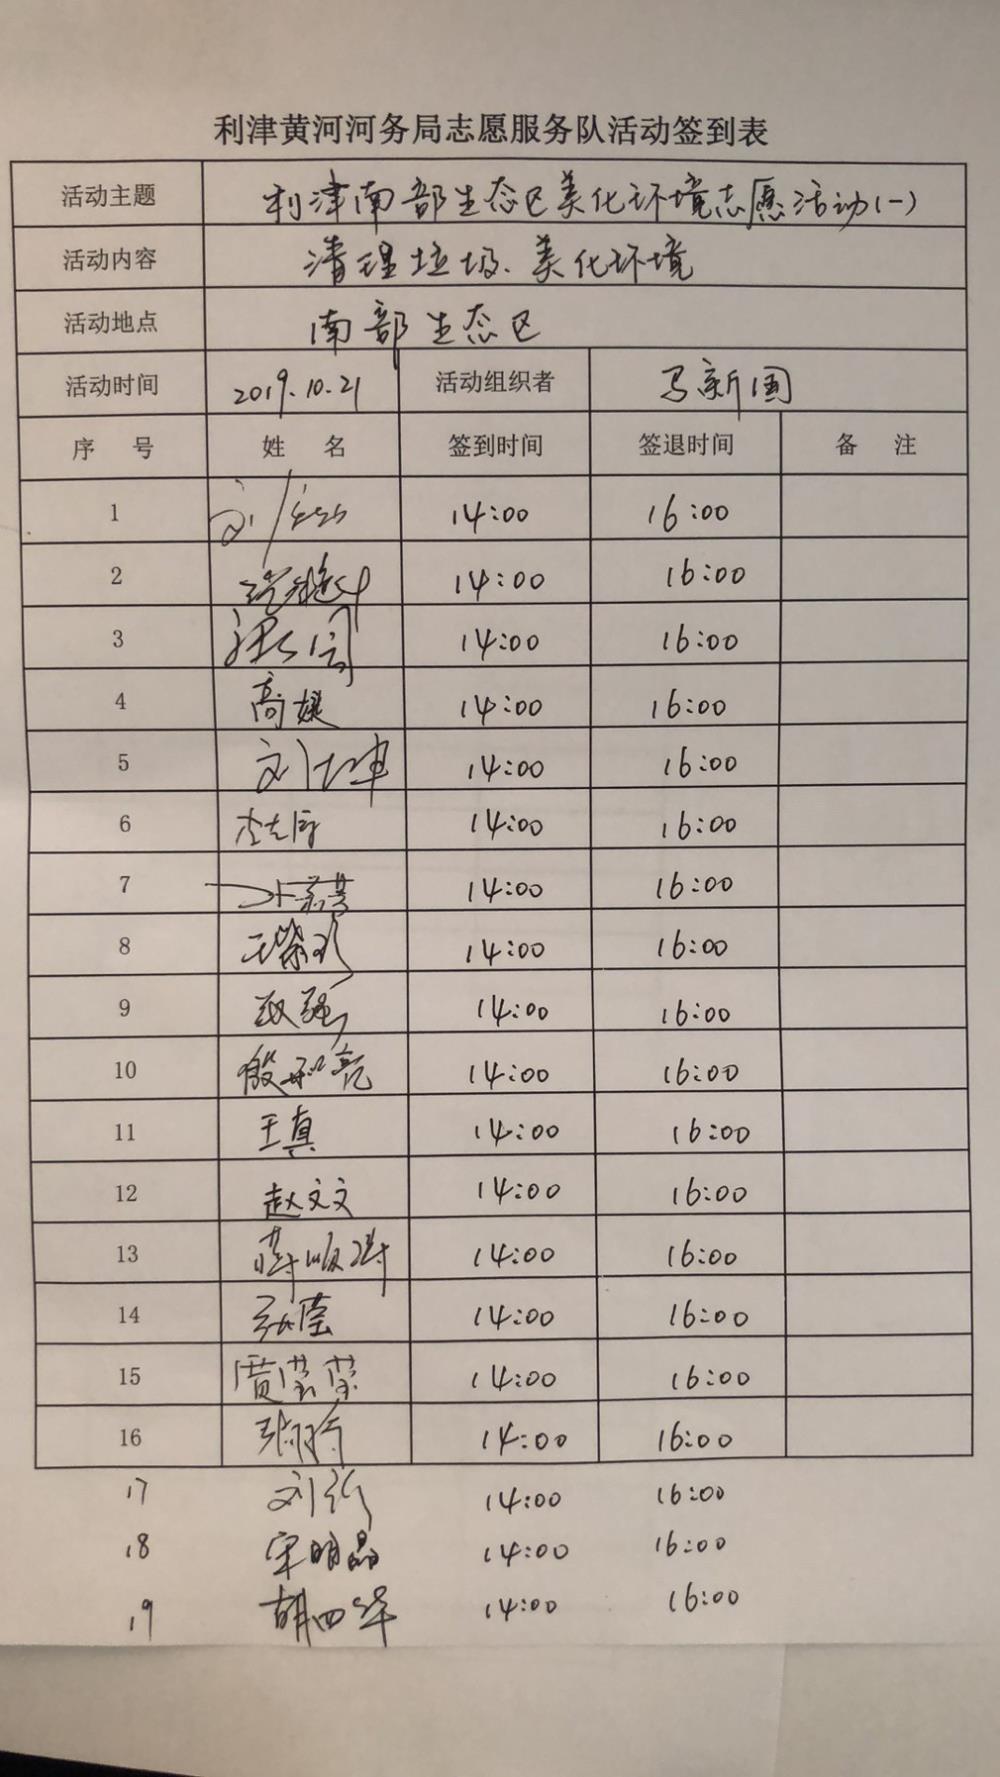 利津黄河河务局志愿服务队活动签到表
活动主题 利津南部生态区美化环境志愿活动(一)
活动内容 清理垃圾、美化环境
活动地点 南部生态区
活动时间 2019.10.21 活动组织者 马新国
序 号 姓 名 签到时间 签退时间 备 注
1 刘 14:00 16:00
2 14:00 16:00
3 14:00 16:00
4 高媛 14:00 16:00
5 刘 坤 14:00 16:00
6 14:00 16:00
7 14:00 16:00
8 14:00 16:00
9 强 14:00 16:00
10 殷和亮 14:00 16:00
11 王真 14:00 16:00
12 赵文文 14:00 16:00
13 14:00 16:00
14 张莹 14:00 16:00
15 贾莹莹 14:00 16:00
16 14:00 16:00
17 刘 14:00 16:00
18 宋明晶 14:00 16:00
19 胡四华 14:00 16:00